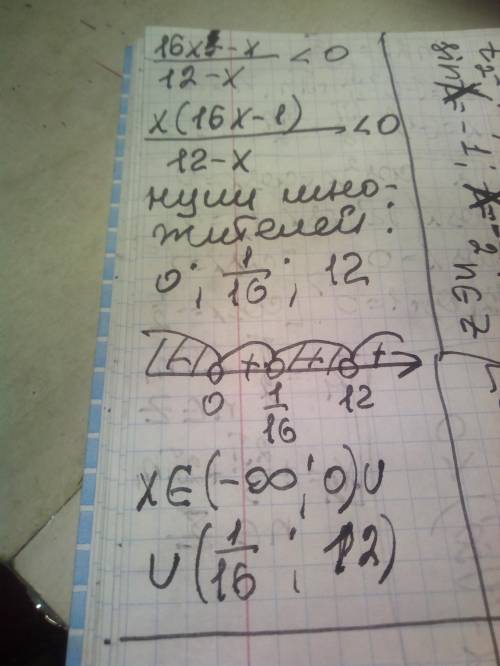 16x² - x / 12 - x < 0
x(16x - 1) / 12 - x < 0
нули мно-
жителей:
0; 1/16; 12
- + - +
0 1/16 12
x∈(-∞; 0)∪
∪(1/16; 12)